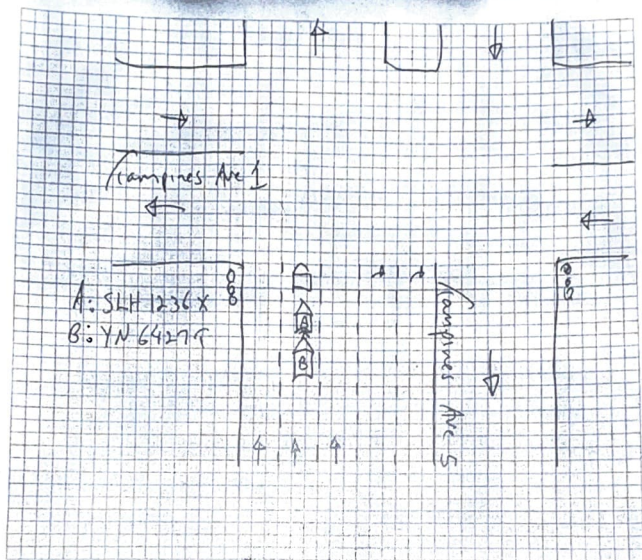 Tampines Ave 1
A: SLH 1236 X
B: YN 6427T
A
B
Tampines Ave 5